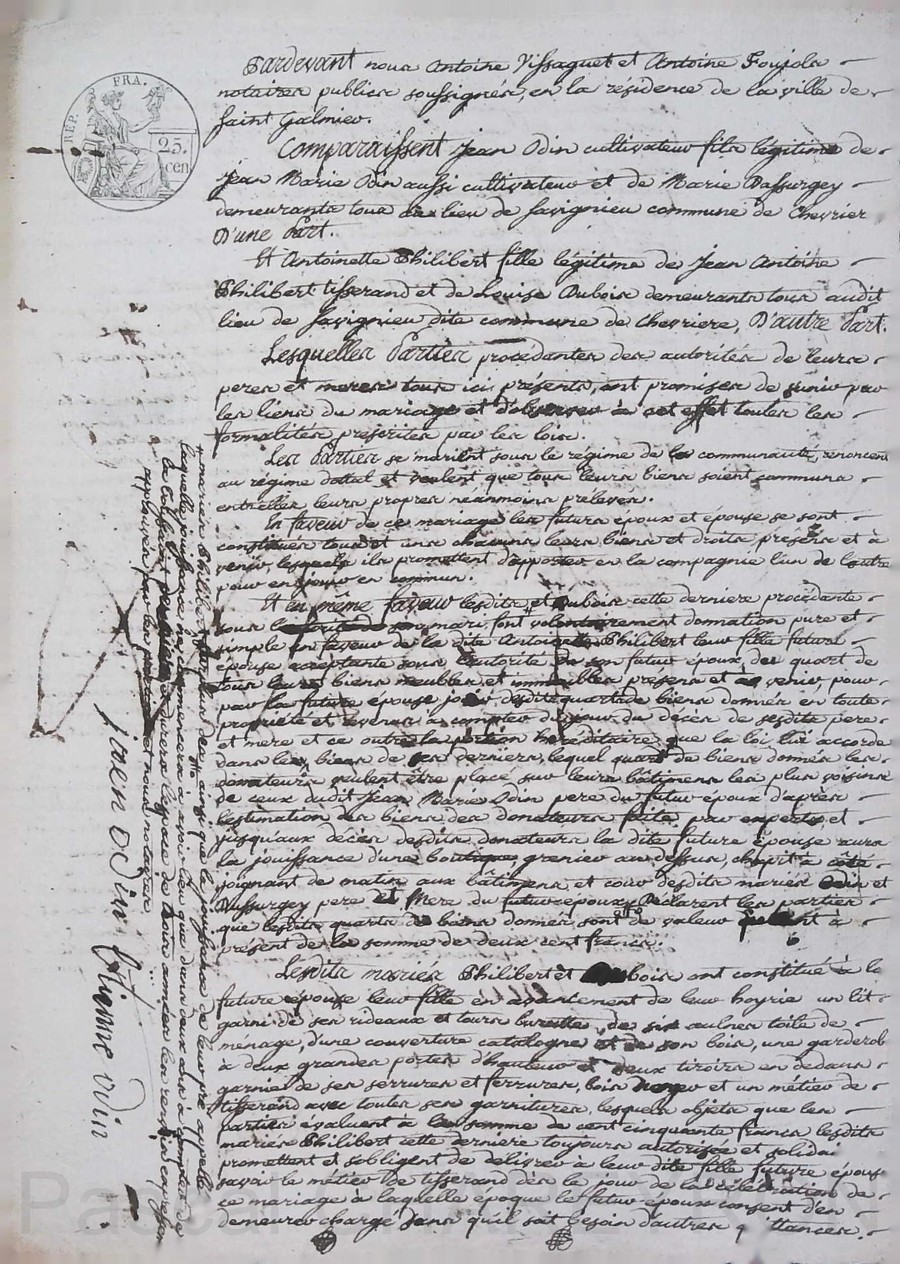 REP. FRA.
25. cen
Pardevant nous Antoine Vissaguet et Antoine Foujols
notaires publics soussignes, en la résidence de la ville de
Saint Galmier.
Comparaissent Jean Odin cultivateur fils légitime de
Jean Marie Odin aussi cultivateur et de Marie Dassurgey
demeurants tous au lieu de Savignieu commune de Chevrier
D'une Part.
Et Antoinette Philibert fille légitime de Jean Antoine
Philibert tisserand et de Louise Dubois demeurants tous audit
lieu de Savignieu dite commune de Chevriere, D'autre Part.
Lesquelles Parties procédantes des autorités de leurs
peres et meres tous ici présents, ont promises de s'unir par
les liens du mariage et d'observer à cet effet toutes les
formalités présrites par les lois.
Les Parties se marient sous le régime de la communauté, renoncent
au régime dottal et veulent que tous leurs biens soient communs
entrelles leurs propres néanmoins prélevés.
En faveur de ce mariage les futurs époux et épouse se sont
constitués tous et uns chacuns leurs biens et droits présens et à
venir, lesquels ils promettent d'apporter en la compagnie l'un de l'autre
pour en jouir en commun.
Et en même faveur lesdits et Dubois cette derniere procédante
sous mari, font volontairement donnation pure et
simple en faveur de la dite Antoinette Philibert leur fille future
épouse acceptante sous l'autorité de son futur époux, du quart de
tous leurs biens meubles et immeubles présens et à venir, pour
par la future épouse jouir desdits quarts de biens donnés en toute
propriété et revenus à compter du jour du décès de sesdits pere
et mere et ce outre la portion héréditaire que la loi lui accorde
dans les biens de ces derniers, lequel quart de biens donnés les
donateurs veulent être placé sur leurs bâtimens les plus voisins
de ceux dudit Jean Marie Odin pere du futur époux d'après
l'estimation des biens des donateurs faite par experts et
jusqu'aux décès desdits donateurs la dite future épouse aura
la jouissance d'une boutique grenier au dessus, chapit à côté
joignant de matin aux bâtimens et cour desdits mariés Odin et
Dassurgey pere et mere du futur époux, Déclarent les parties
que lesdits quarts de biens donnés sont de valeur à
présent de la somme de deux cent francs.
Lesdits mariés Philibert et Dubois ont constitué à la
future épouse leur fille en avancement de leur hoyrie un lit
garni de ses rideaux et tours de six aulnes toile de
ménage, d'une couverture catalogne et de son bois, une garderob
à deux grandes portes d'hauteur et deux tiroirs en dedans
garnie de ses serrures et ferrures, bois et un métier de
tisserand avec toutes ses garnitures, lesquels objets que les
parties évaluent à la somme de cent cinquante francs lesdits
mariés Philibert cette derniere toujours autorisée et solidai
promettent et s'obligent de délivrer à leur dite fille future épouse
savoir le métier de tisserand dès le jour de la célébration de
ce mariage à laquelle époque le futur époux consent d'en
demeurer chargé sans qu'il soit besoin d'autres
mariés Philibert ainsi que la jouissance de leur pré appellé
laquelle jouissance ne commencera à avoir lieu que dans deux ans à compter de
approuvés par les parties et nous notaires
jaen odin
Etienne odin